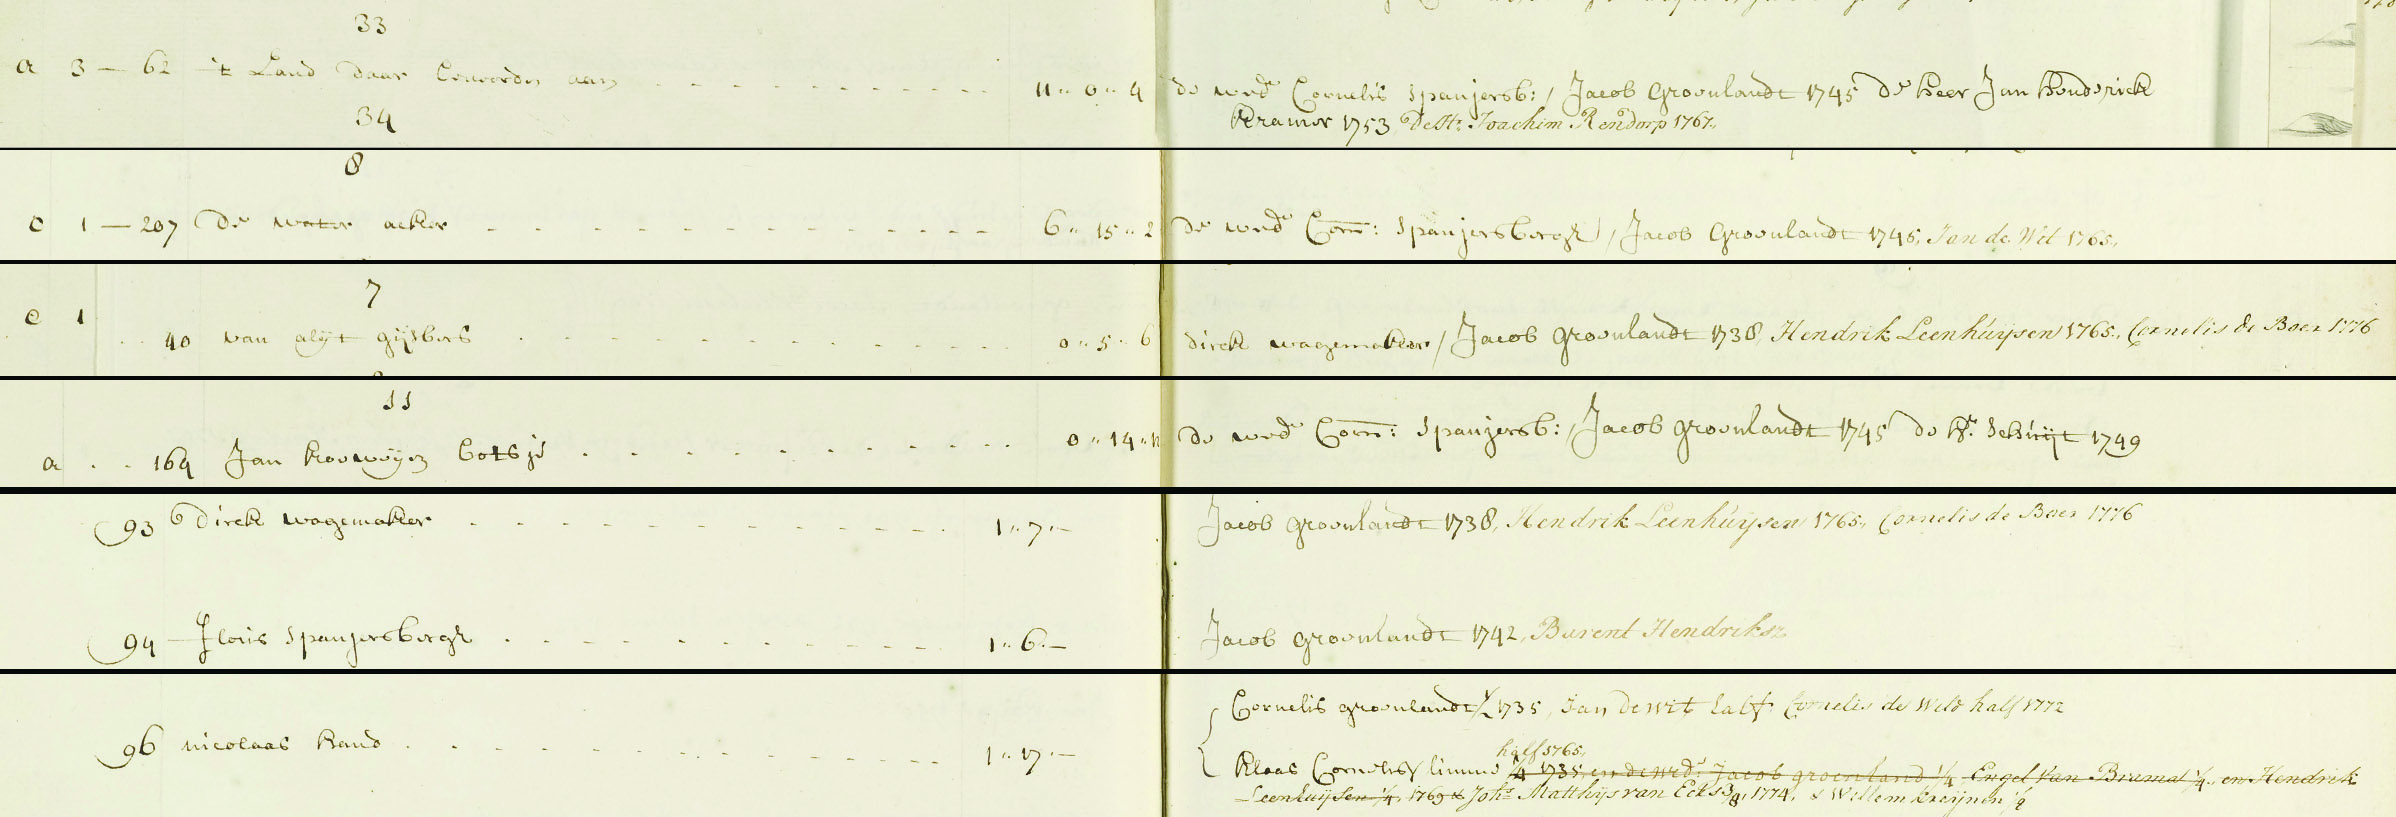 33
a 3 — 62 't Land daar Coenordn aan . . . . . . . . . . . . . 11 „ 0 „ 4 de wed.e Cornelis Spanjersb: / Jacob Groenlandt 1745 de heer Jan Honderick
34 Kramer 1753, De Hr. Joachim Rendorp 1767.
8
c 1 — 207 De water acker . . . . . . . . . . . . . . . 6 „ 15 „ 2 de wed.e Corn: Spanjersbergh / Jacob Groenlandt 1745, Jan de Wit 1765.
7
c 1
40 van alijt gijsbers . . . . . . . . . . . . . . 0 „ 5 „ 6 dirck wagemaker / Jacob Groenlandt 1738, Hendrik Leenhuijsen 1765., Cornelis de Boer 1776
11
a . . 164 Jan botsje . . . . . . . . . . . . . 0 „ 14 „ 11 de wed.e Corn: Spanjersb: / Jacob groenlandt 1745 de Hr. Schuijt 1749
93 Dirck wagemaker . . . . . . . . . . . . . . 1 „ 7 „ — Jacob groenlandt 1738, Hendrik Leenhuijsen 1765., Cornelis de Boer 1776
94 — Floris Spanjersbergh . . . . . . . . . . . . . 1 „ 6 „ — Jacob Groenlandt 1742, Barent Hendriksz
Cornelis groenlandt ½ 1735, Jan de wit half Cornelis de Wild half 1772
96 nicolaas Kand . . . . . . . . . . . . . . 1 „ 17 „ —
half 1765.
Klaas Cornelisz ¼ 1735 en de wed.e Jacob groenland ¼ Engel Van Brumat ¼., en Hendrik
Leenhuijsen ¼, 1769 & Johs. Matthijs van Eck 3/8, 1774, & Willem Kreijnen ⅛